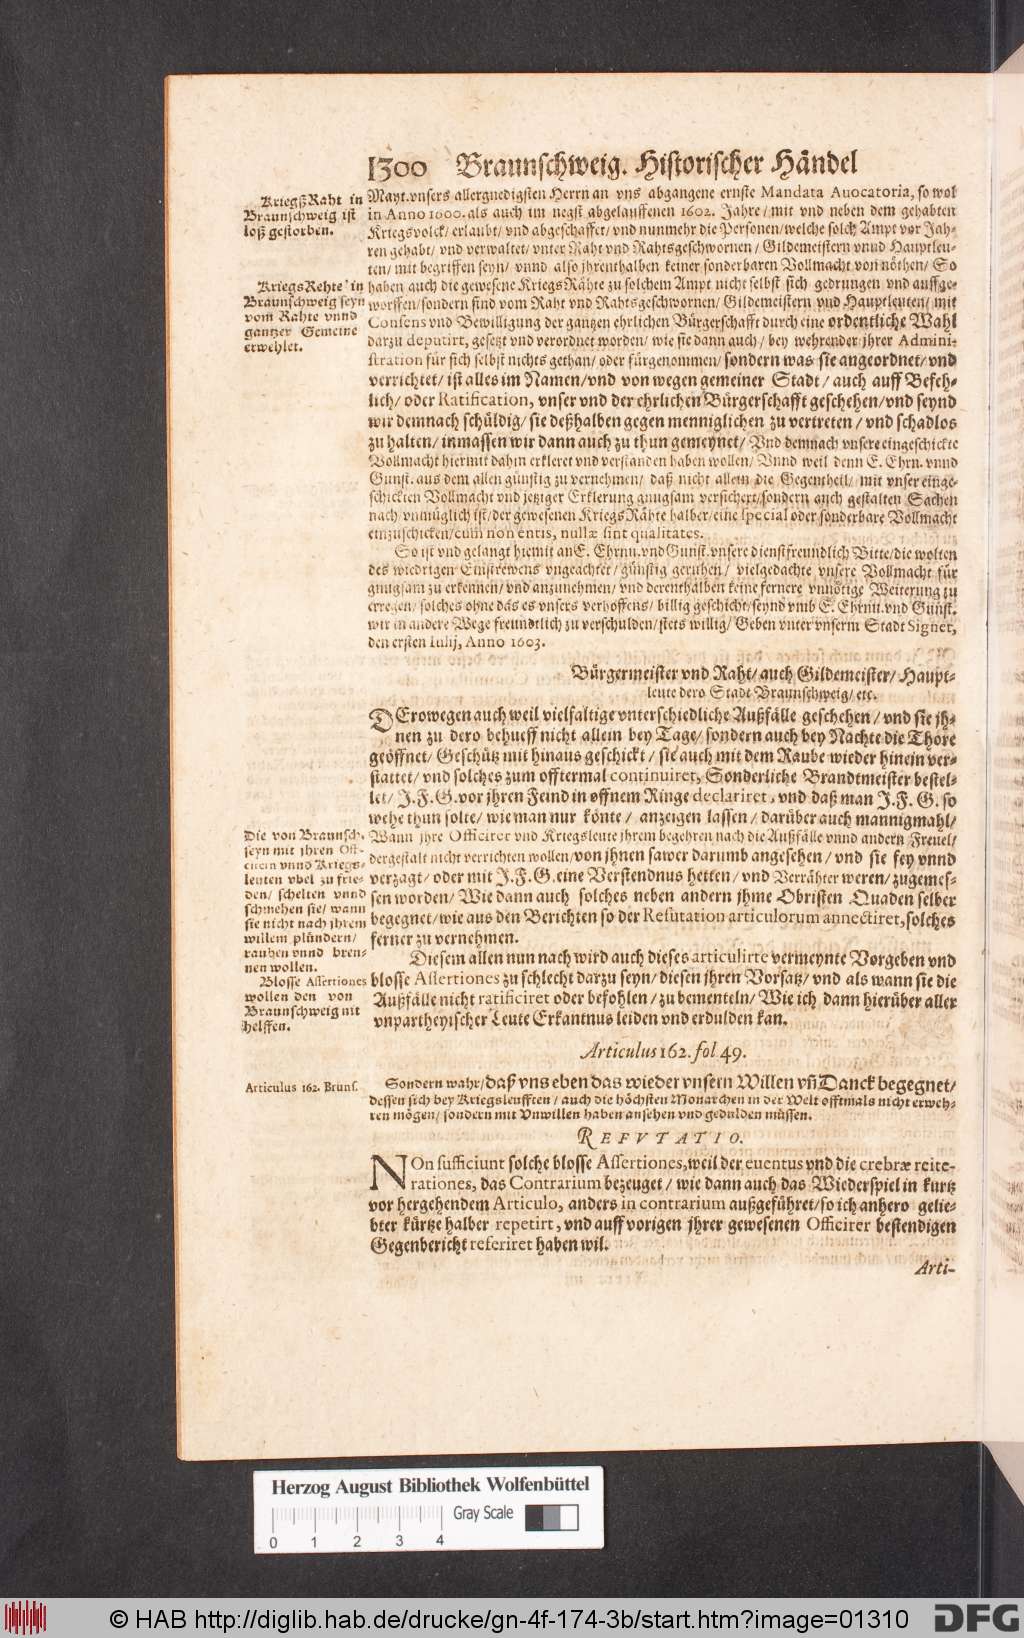 1300 Braunschweig. Historischer Händel
KriegßRaht in
Braunschweig ist
loß gestorben.
Mayt. vnsers allergnedigsten Herrn an vns abgangene ernste Mandata Auocatoria, so wol
in Anno 1600. als auch im negst abgelauffenen 1602. Jahre/ mit vnd neben dem gehabten
Kriegsvolck/ erlaubt/ vnd abgeschaffet/ vnd nunmehr die Personen/ welche solch Ampt vor Jah-
ren gehabt/ vnd verwaltet/ vnter Raht vnd Rahtsgeschwornen/ Gildemeistern vnnd Hauptleu-
ten/ mit begriffen seyn/ vnnd also jhrenthalben keiner sonderbaren Vollmacht von nöthen/ So
KriegsRehte in
Braunschweig seyn
vom Rahte vnnd
gantzer Gemeine
erwehlet.
haben auch die gewesene KriegsRähte zu solchem Ampt nicht selbst sich gedrungen vnd auffge-
worffen/ sondern sind vom Raht vnd Rahtsgeschwornen/ Gildemeistern vnd Hauptleuten/ mit
Consens vnd Bewilligung der gantzen ehrlichen Bürgerschafft durch eine ordentliche Wahl
darzu deputirt, gesetzt vnd verordnet worden/ wie sie dann auch/ bey wehrender jhrer Admini-
stration für sich selbst nichts gethan/ oder fürgenommen/ sondern was sie angeordnet/ vnd
verrichtet/ ist alles im Namen/ vnd von wegen gemeiner Stadt/ auch auff Befeh-
lich/ oder Ratification, vnser vnd der ehrlichen Bürgerschafft geschehen/ vnd seynd
wir demnach schüldig/ sie deßhalben gegen menniglichen zu vertreten/ vnd schadlos
zu halten/ inmassen wir dann auch zu thun gemeynet/ Vnd demnach vnsere eingeschickte
Vollmacht hiermit dahin erkleret vnd verstanden haben wollen/ Vnnd weil denn E. Ehrn. vnnd
Gunst. aus dem allen günstig zu vernehmen/ daß nicht allein die Gegentheil/ mit vnser einge-
schickten Vollmacht vnd jetziger Erklerung gnugsam versichert/ sondern auch gestalten Sachen
nach/ vnmüglich ist/ der gewesenen KriegsRähte halber/ eine special oder sonderbare Vollmacht
einzuschicken/ cum non entis, nullæ sint qualitates.
So ist vnd gelangt hiemit an E. Ehrnu. vnd Gunst. vnsere dienstfreundlich Bitte/ die wolten
des wiedrigen Einstrewens vngeachtet/ günstig geruhen/ vielgedachte vnsere Vollmacht für
gnugsam zu erkennen/ vnd anzunehmen/ vnd derenthalben keine fernere vnnötige Weiterung zu
erregen/ solches ohne das es vnsers verhoffens/ billig geschicht/ seynd vmb E. Ehrnu. vnd Gunst.
wir in andere Wege freundtlich zu verschulden/ stets willig/ Geben vnter vnserm Stadt Signet,
den ersten Iulij, Anno 1603.
Bürgermeister vnd Raht/ auch Gildemeister/ Haupt-
leute dero Stadt Braunschweig/ etc.
DErowegen auch weil vielfaltige vnterschiedliche Außfälle geschehen/ vnd sie jh-
nen zu dero behueff nicht allein bey Tage/ sondern auch bey Nachte die Thore
geöffnet/ Geschütz mit hinaus geschickt/ sie auch mit dem Raube wieder hinein ver-
stattet/ vnd solches zum offtermal continuiret, Sonderliche Brandtmeister bestel-
let/ J. F. G. vor jhren Feind in offnem Ringe declariret, vnd daß man J. F. G. so
wehe thun solte/ wie man nur könte/ anzeigen lassen/ darüber auch mannigmahl/
Die von Braunsch.
seyn mit jhren Off-
cirern vnnd Kriegs-
leuten vbel zu frie-
den/ schelten vnnd
schmehen sie/ wann
sie nicht nach jhrem
willem plündern/
rauben vnnd bren-
nen wollen.
Wann jhre Officirer vnd Kriegsleute jhrem begehren nach die Außfälle vnnd andern Frevel/
dergestalt nicht verrichten wollen/ von jhnen sawer darumb angesehen/ vnd sie sey vnnd
verzagt/ oder mit J. F. G. eine Verstendnus hetten/ vnd Verrähter weren/ zugemes-
sen worden/ Wie dann auch solches neben andern jhme Obristen Quaden selber
begegnet/ wie aus den Berichten so der Refutation articulorum annectiret, solches
ferner zu vernehmen.
Blosse Assertiones
wollen den von
Braunschweig nit
helffen.
Diesem allen nun nach wird auch dieses articulirte vermeynte Vorgeben vnd
blosse Assertiones zu schlecht darzu seyn/ diesen jhren Vorsatz/ vnd als wann sie die
Außfälle nicht ratificiret oder befohlen/ zu bementeln/ Wie ich dann hierüber aller
vnpartheyischer Leute Erkantnus leiden vnd erdulden kan.
Articulus 162. fol 49.
Articulus 162. Bruns.
Sondern wahr/ daß vns eben das wieder vnsern Willen vñ Danck begegnet/
dessen sich bey Kriegsleufften/ auch die höchsten Monarchen in der Welt offtmals nicht erweh-
ren mögen/ sondern mit Vnwillen haben ansehen vnd gedulden müssen.
REFVTATIO.
NOn sufficiunt solche blosse Assertiones, weil der euentus vnd die crebræ reite-
rationes, das Contrarium bezeuget/ wie dann auch das Wiederspiel in kurtz
vor hergehendem Articulo, anders in contrarium außgeführet/ so ich anhero gelie-
bter kürtze halber repetirt, vnd auff vorigen jhrer gewesenen Officirer bestendigen
Gegenbericht referiret haben wil.
Arti-
Herzog August Bibliothek Wolfenbüttel
Gray Scale
0 1 2 3 4
© HAB http://diglib.hab.de/drucke/gn-4f-174-3b/start.htm?image=01310
DFG